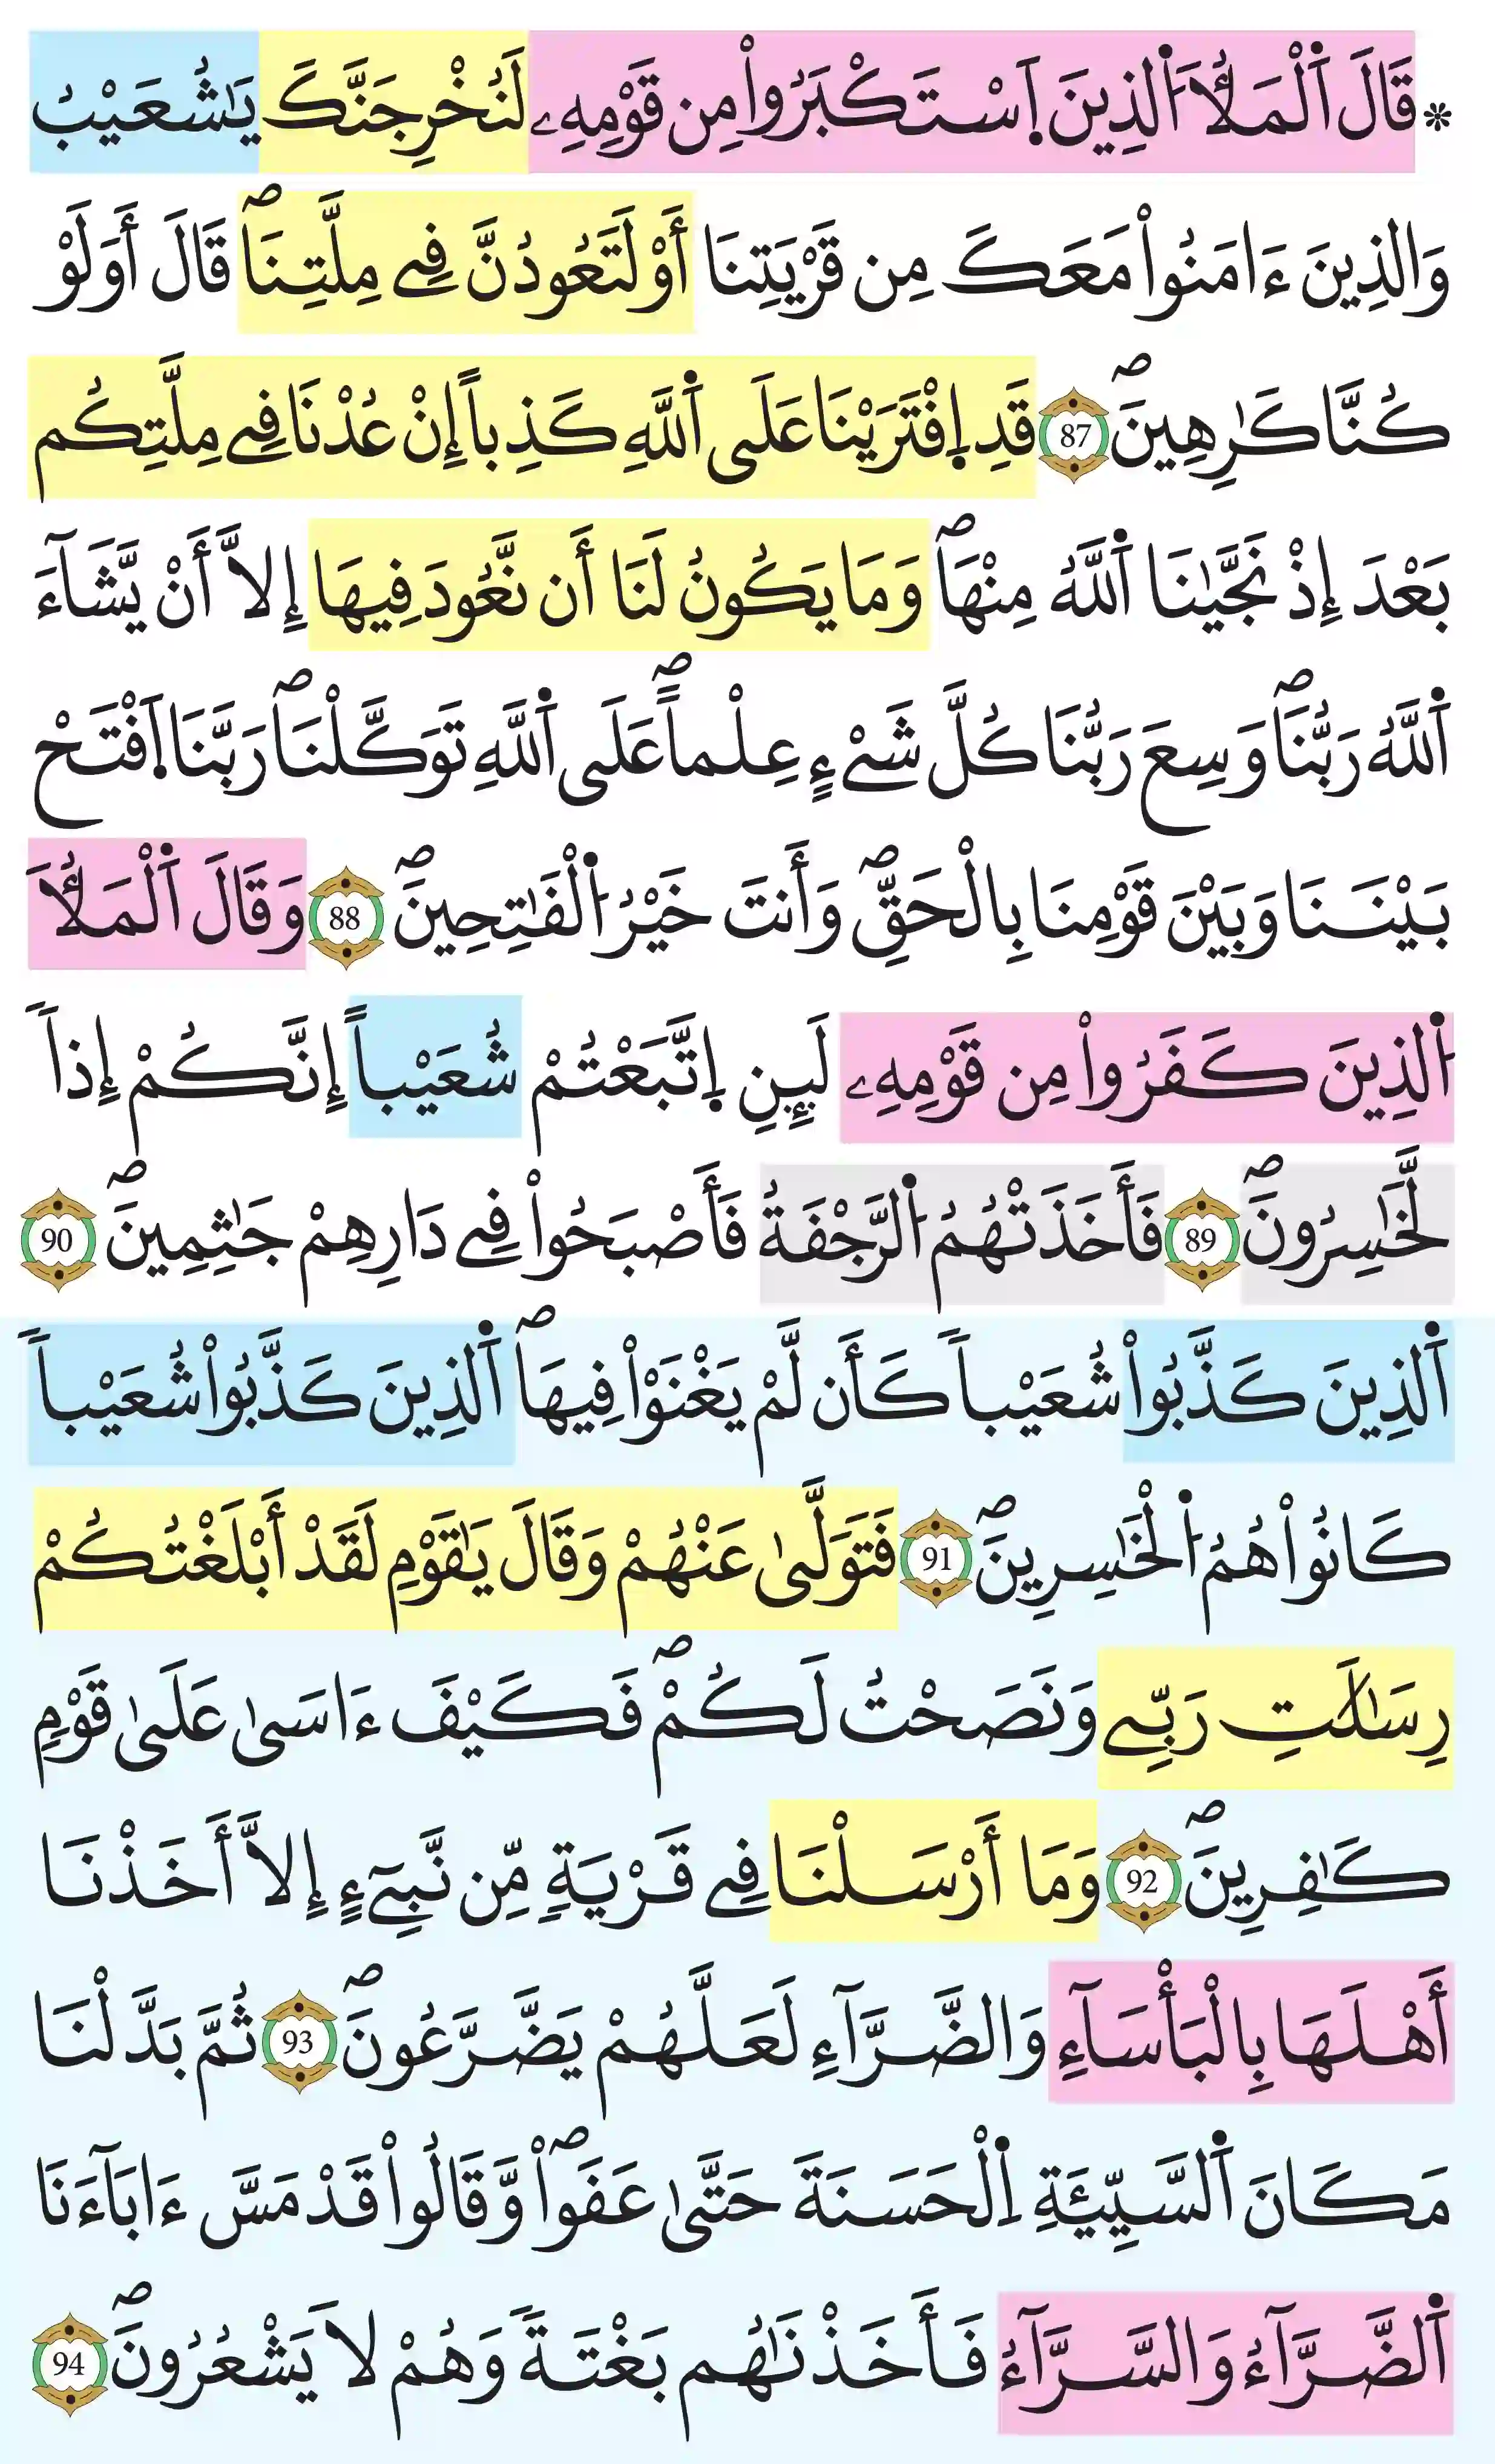 * قَالَ اَ۬لْمَلَأُ اُ۬لذِينَ اَ۪سْتَكْبَرُواْ مِن قَوْمِهِۦ لَنُخْرِجَنَّكَ يَٰشُعَيْبُ
وَالذِينَ ءَامَنُواْ مَعَكَ مِن قَرْيَتِنَا أَوْ لَتَعُودُنَّ فِے مِلَّتِنَاۖ قَالَ أَوَلَوْ
كُنَّا كَٰرِهِينَۖ 87 قَدِ اِ۪فْتَرَيْنَا عَلَى اَ۬للَّهِ كَذِباً إِنْ عُدْنَا فِے مِلَّتِكُم
بَعْدَ إِذْ نَجَّيٰنَا اَ۬للَّهُ مِنْهَاۖ وَمَا يَكُونُ لَنَا أَن نَّعُودَ فِيهَا إِلَّا أَنْ يَّشَآءَ
اَ۬للَّهُ رَبُّنَاۖ وَسِعَ رَبُّنَا كُلَّ شَےْءٍ عِلْماًۖ عَلَى اَ۬للَّهِ تَوَكَّلْنَاۖ رَبَّنَا اَ۪فْتَحْ
بَيْنَنَا وَبَيْنَ قَوْمِنَا بِالْحَقِّۖ وَأَنتَ خَيْرُ اُ۬لْفَٰتِحِينَۖ 88 وَقَالَ اَ۬لْمَلَأُ
اُ۬لذِينَ كَفَرُواْ مِن قَوْمِهِۦ لَئِنِ اِ۪تَّبَعْتُمْ شُعَيْباً إِنَّكُمْ إِذاً
لَّخَٰسِرُونَۖ 89 فَأَخَذَتْهُمُ اُ۬لرَّجْفَةُ فَأَصْبَحُواْ فِے دَارِهِمْ جَٰثِمِينَۖ 90
اَ۬لذِينَ كَذَّبُواْ شُعَيْباً كَأَن لَّمْ يَغْنَوْاْ فِيهَاۖ اَ۬لذِينَ كَذَّبُواْ شُعَيْباً
كَانُواْ هُمُ اُ۬لْخَٰسِرِينَۖ 91 فَتَوَلَّىٰ عَنْهُمْ وَقَالَ يَٰقَوْمِ لَقَدْ أَبْلَغْتُكُمْ
رِسَٰلَٰتِ رَبِّے وَنَصَحْتُ لَكُمْۖ فَكَيْفَ ءَاسَىٰ عَلَىٰ قَوْمٍ
كَٰفِرِينَۖ 92 وَمَا أَرْسَلْنَا فِے قَرْيَةٍ مِّن نَّبِےٓءٍ إِلَّا أَخَذْنَا
أَهْلَهَا بِالْبَأْسَآءِ وَالضَّرَّآءِ لَعَلَّهُمْ يَضَّرَّعُونَۖ 93 ثُمَّ بَدَّلْنَا
مَكَانَ اَ۬لسَّيِّئَةِ اِ۬لْحَسَنَةَ حَتَّىٰ عَفَواْۖ وَّقَالُواْ قَدْ مَسَّ ءَابَآءَنَا
اَ۬لضَّرَّآءُ وَالسَّرَّآءُ فَأَخَذْنَٰهُم بَغْتَةً وَهُمْ لَا يَشْعُرُونَۖ 94